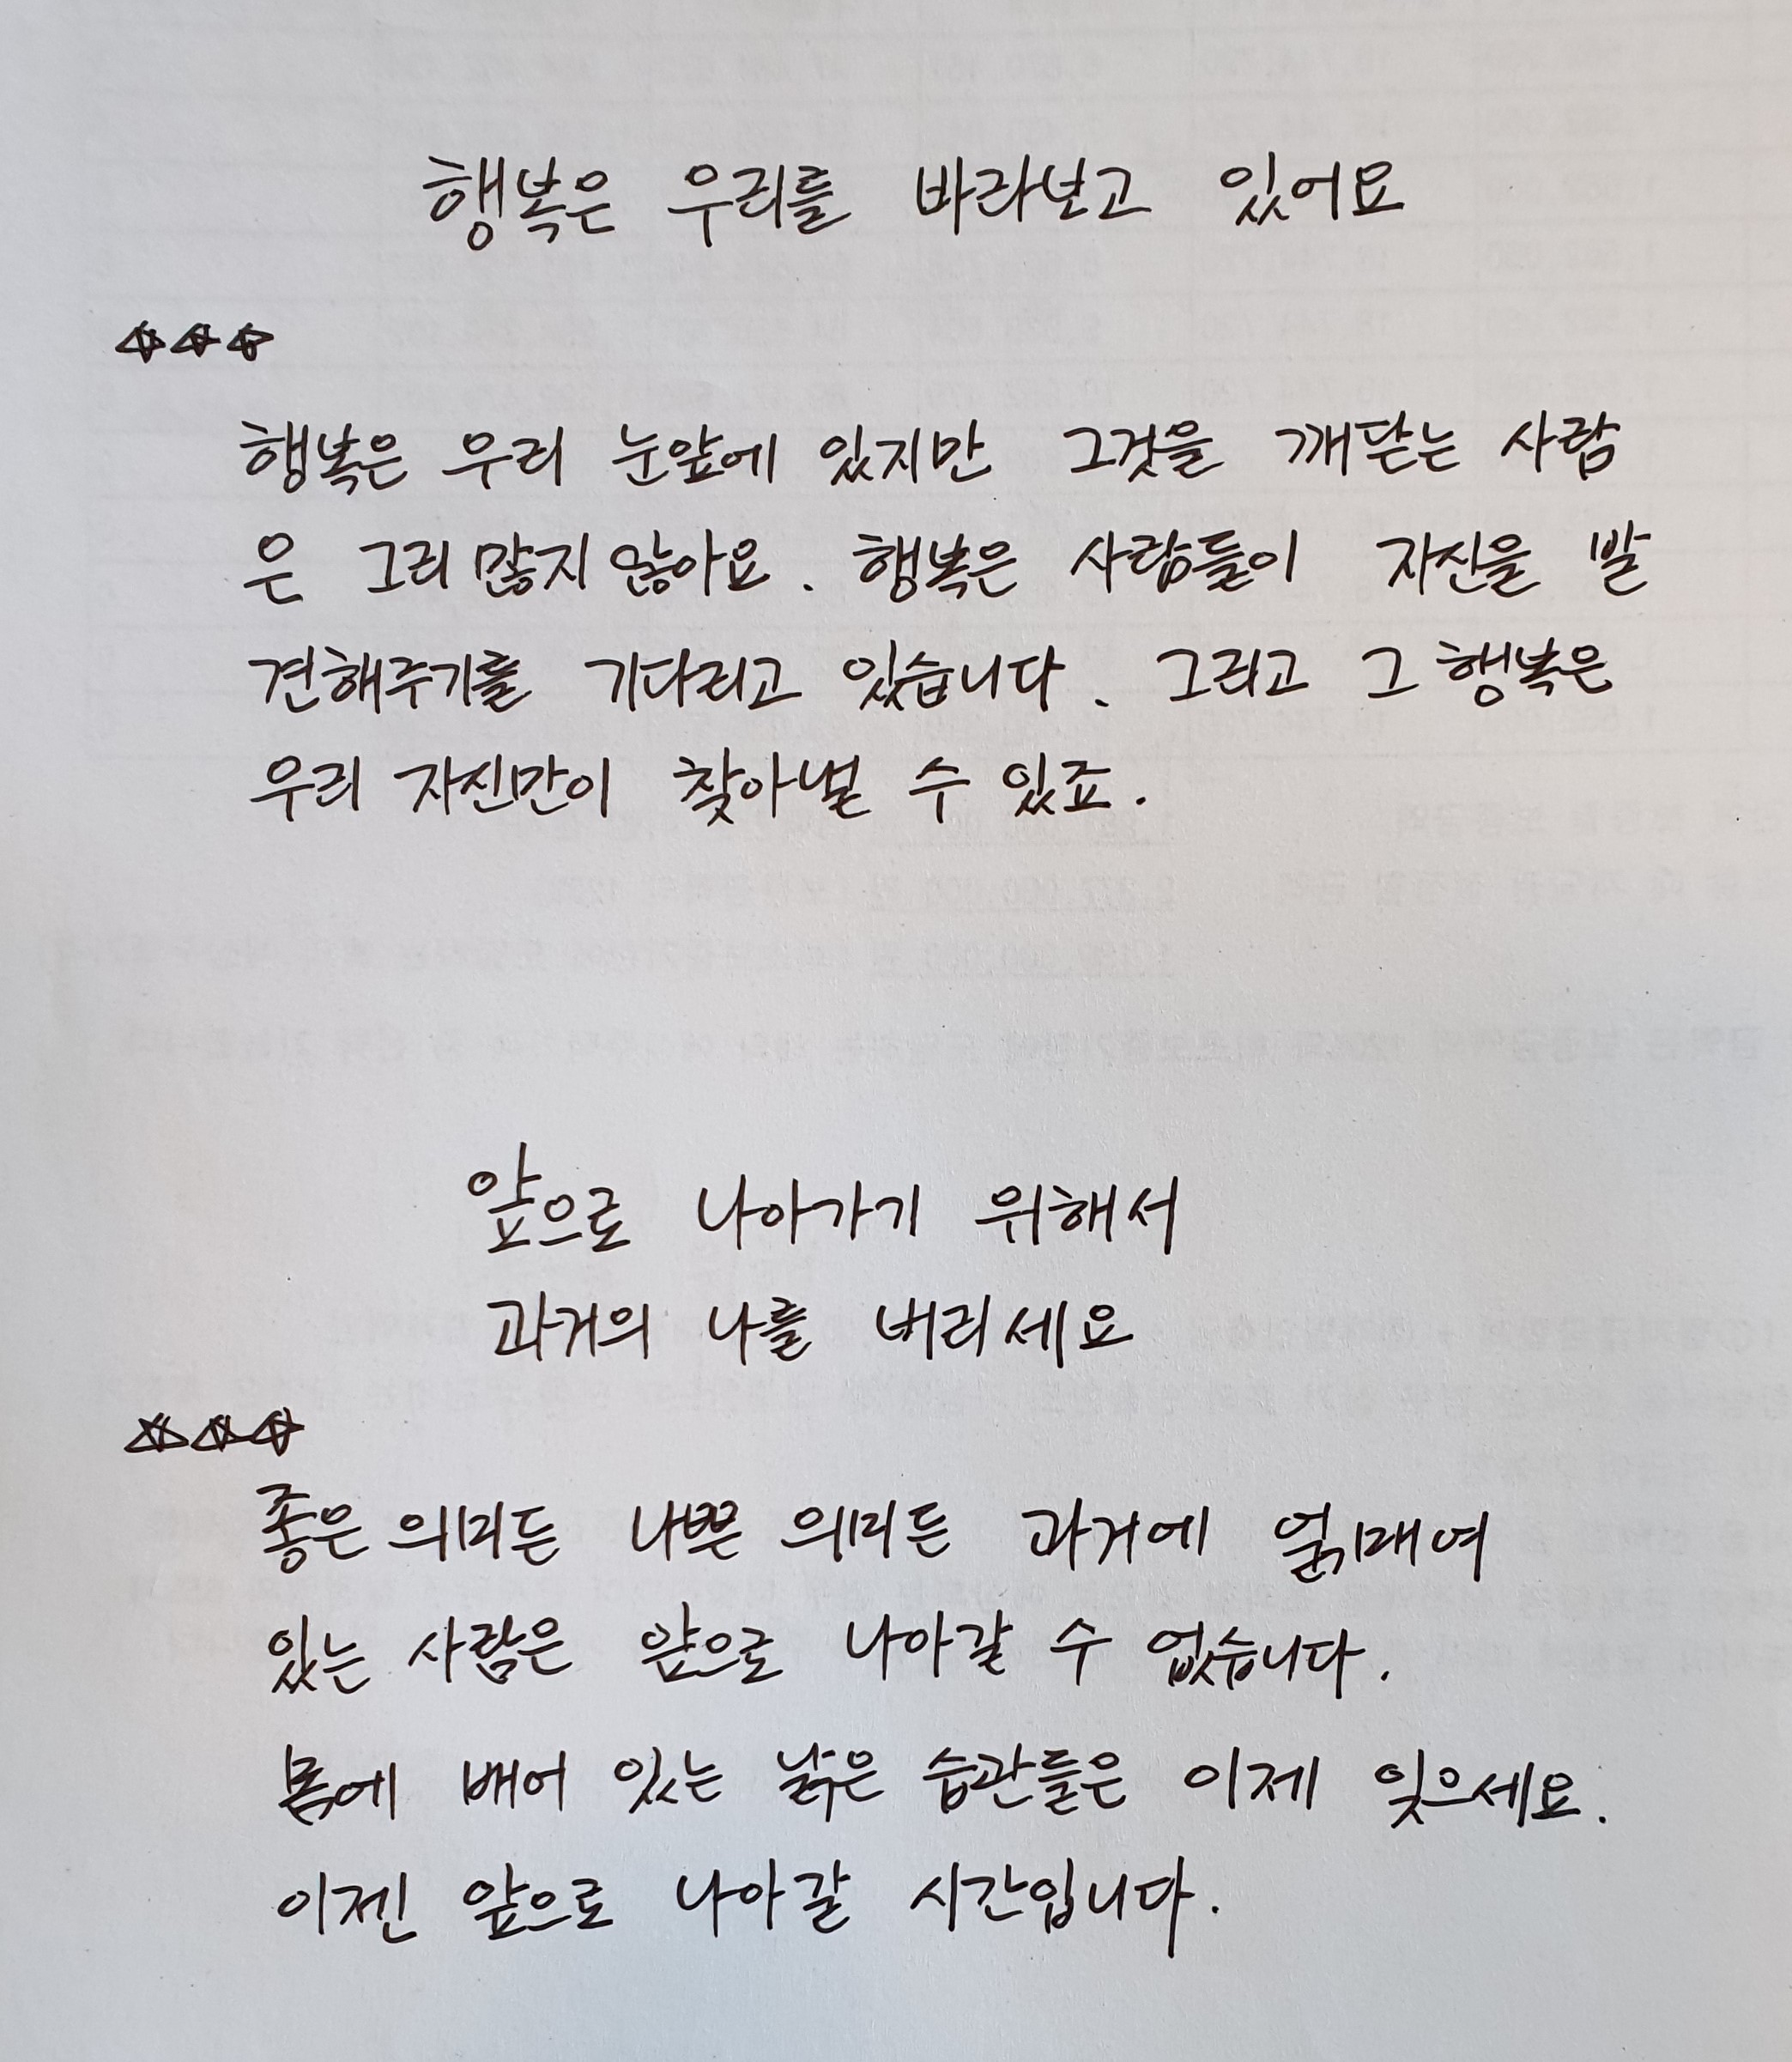 행복은 우리를 바라보고 있어요
☆☆☆
행복은 우리 눈앞에 있지만 그것을 깨닫는 사람
은 그리 많지 않아요. 행복은 사람들이 자신을 발
견해주기를 기다리고 있습니다. 그리고 그 행복은
우리 자신만이 찾아낼 수 있죠.
앞으로 나아가기 위해서
과거의 나를 버리세요
☆☆☆
좋은 의미든 나쁜 의미든 과거에 얽매여
있는 사람은 앞으로 나아갈 수 없습니다.
몸에 배어 있는 낡은 습관들은 이제 잊으세요.
이젠 앞으로 나아갈 시간입니다.